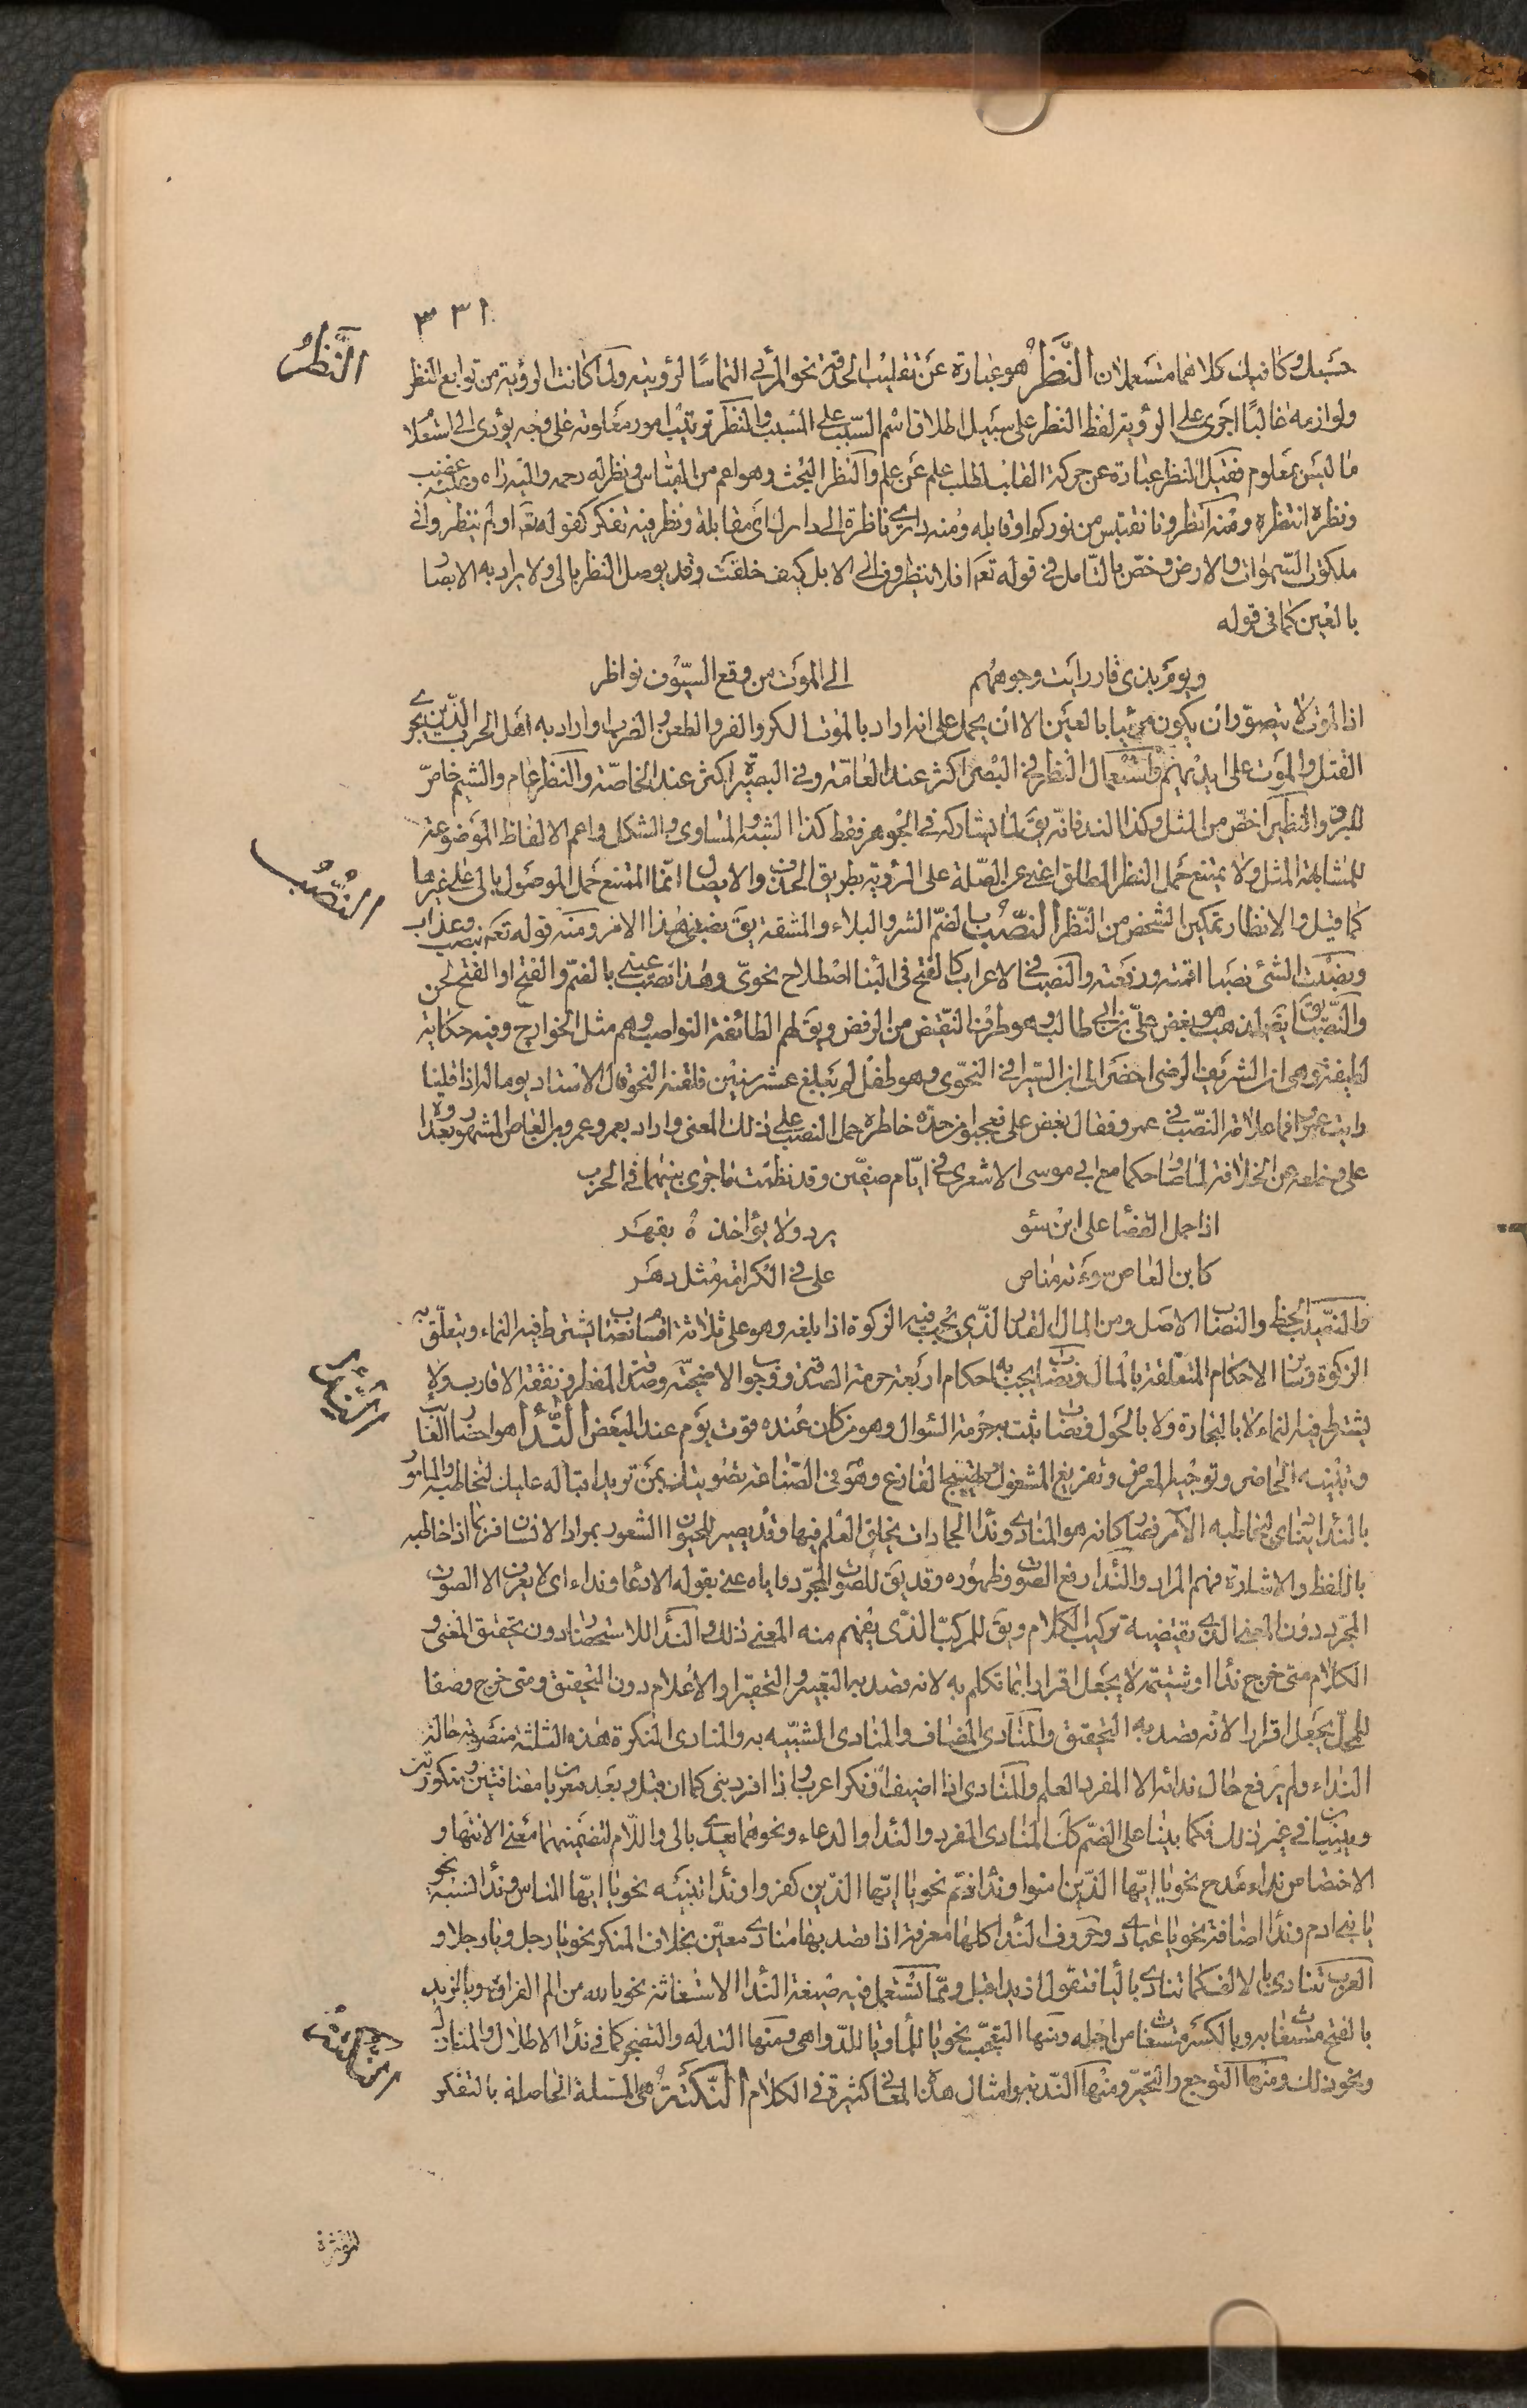 ٣٣١
النَّظَرُ
حسبك وكافيك كلاهما مستعملان النَّظَرُ هو عبارة عن تقليب الحدقة نحو المرئي التماسًا لرؤيته ولما كانت الرؤية من توابع النظر
ولوازمه غالبًا اجرى على الرؤية لفظ النظر على سبيل اطلاق اسم السبب على المسبب والنظر ترتيب امور معلومة على وجه يؤدى الى استعلام
ما ليس بمعلوم فقيل النظر عبارة عن حركة القلب لطلب علم عن علم والنظر البحث وهو اعم من القياس ونظر له رحمه واليه رآه وعليه غضب
ونظره انتظره ومنه انظرونا نقتبس من نوركم او قابله ومنه دارى ناظرة الى دارك اى مقابلة ونظر فيه تفكر كقوله تعه اولم ينظروا فى
ملكوت السموات والارض وخص بالتامل فى قوله تعه افلا ينظرون الى الابل كيف خلقت وقد يوصل النظر بالى ولا يراد به الابصار
بالعين كما فى قوله
ويوم بذى قار رايت وجوههم الى الموت من وقع السيوف نواظر
اذ الموت لا يتصور ان يكون مرئيا بالعين الا ان يحمل على انه اراد بالموت الكر والفر والطعن والضرب او اراد به اهل الحرب الذين يجرى
القتل والموت على ايديهم واستعمال النظر فى البصر اكثر عند العامة وفى البصيرة اكثر عند الخاصة والنظر عام والشيم خاص
للبرق والنظير اخص من المثل وكذا الند فانه يق لما يشاركه فى الجوهر فقط كذا الشبه والمساوى والشكل واعم الالفاظ الموضوعة
النُّصْبُ
للمشابهة المثل ولا يمتنع حمل النظر المطلق اعنى عن الصلة على الرؤية بطريق الحذف والايصال انما الممتنع حمل الموصول بالى على غيرها
كما قيل والانظار تمكين الشخص من النظر النُّصْبُ بالضم الشر والبلاء والمشقة يق نصبنى هذا الامر ومنه قوله تعه بنصب وعذاب
ونصبت الشئ نصبا اقمته ورفعته والنصب فى الاعراب كالفتح فى البنا اصطلاح نحوى وهذا نصب عينى بالضم والفتح او الفتح لحن
والنصب يق لمذهب هو بغض على بن ابى طالب وهو طرف النقيض من الرفض ويق لهم الطائفة النواصب وهم مثل الخوارج وفيه حكاية
لطيفة وهى ان الشريف الرضى احضر الى ابن السيرافى النحوى وهو طفل لم يبلغ عشر سنين فلقنه النحو قال الاستاد يوما له اذا قلنا
رايت عمرا فما علامة النصب فى عمرو فقال بغض على فعجبوا من حدة خاطره حمل النصب على ذلك المعنى واراد بعمرو عمرو بن العاص المشهور بعداوة
على وخلعه من الخلافة لما صار حكما مع ابى موسى الاشعرى فى ايام صفين وقد نظمت ما جرى بينهما فى الحرب
اذا حمل القضا على ابن سو يرد ولا يؤاخذه بقهر
كابن العاص سوءته مناص على فى الكرامة مثل دهر
والنصيب الحظ والنصاب الاصل ومن المال القدر الذى يجب فيه الزكوة اذا بلغه وهو على ثلاثة اقسام نصاب يشترط فيه النماء ويتعلق به
النِّدَاءُ
الزكوة وسائر الاحكام المتعلقة بالمال ونصاب يجب به احكام اربعة حرمة الصدقة ووجوب الاضحية وصدقة الفطر ونفقة الاقارب ولا
يشترط فيه النماء لا بالتجارة ولا بالحول ونصاب يثبت به حرمة السوال وهو من كان عنده قوت يوم عند البعض النِّدَاءُ هو احضار الغائب
وتنبيه الحاضر وتوجيه المعرض وتفريغ المشغول وتهييج الفارغ وهو فى الصناعة تصويتك بمن تريد اقباله عليك لتخاطبه والمامور
بالندا ينادى ليخاطبه الآمر فصار كانه هو المنادى وندا الجمادات بخلق العلم فيها وقد يصير للحيوان الشعور بمراد الانسان فربما اذا خاطبه
باللفظ والاشارة فهم المراد والندا رفع الصوت وظهوره وقد يق للصوت المجرد واياه عنى بقوله الا دعاء ونداء اى لا يعرف الا الصوت
المجرد دون المعنى الذى يقتضيه تركيب الكلام ويق للمركب الذى يفهم منه المعنى ذلك والندا للاستحضار دون تحقيق المعنى و
الكلام متى خرج ندا او شتيمة لا يجعل اقرارا بما تكلم به لانه قصد به التعيير والتحقير او الاعلام دون التحقيق ومتى خرج وصفا
للمحل يجعل اقرارا لانه قصد به التحقيق والمنادى المضاف والمنادى المشبه به والمنادى النكرة هذه الثلثة منصوبة حالة
النداء ولم يرفع حال ندائه الا المفرد العلم والمنادى اذا اضيف او نكر اعرب واذا افرد بنى كما ان قبل وبعد معربان مضافتين ومنكورتين
ويبنيان فى غير ذلك فكما بنيا على الضم كذا المنادى المفرد والندا والدعاء ونحوهما يعدى بالى واللام لتضمينهما معنى الانتهاء و
الاختصاص نداء مدح نحو يا ايها الذين امنوا وندا ذم نحو يا ايها الذين كفروا وندا تنبيه نحو يا ايها الناس وندا النسبة نحو
يا بنى ادم وندا اضافة نحو يا عبادى وحروف الندا كلها معرفة اذا قصد بها منادى معين بخلاف المنكر نحو يا رجل ويا رجلا و
العرب تنادى بالالف كما تنادى باليا فتقول ازيد اقبل ومما تستعمل فيه صيغة الندا الاستغاثة نحو يا لله من الم الفراق ويا لزيد
النُّكْتَةُ
بالفتح مستغاث به وبالكسر مستغاث من اجله ومنها التعجب نحو يا للماء ويا للدواهى ومنها التدله والتضجر كما فى ندا الاطلال والمنازل
ونحو ذلك ومنها التوجع والتحير ومنها الندبه وامثال هذه المعانى كثيرة فى الكلام النُّكْتَةُ هى المسئلة الحاصلة بالتفكر